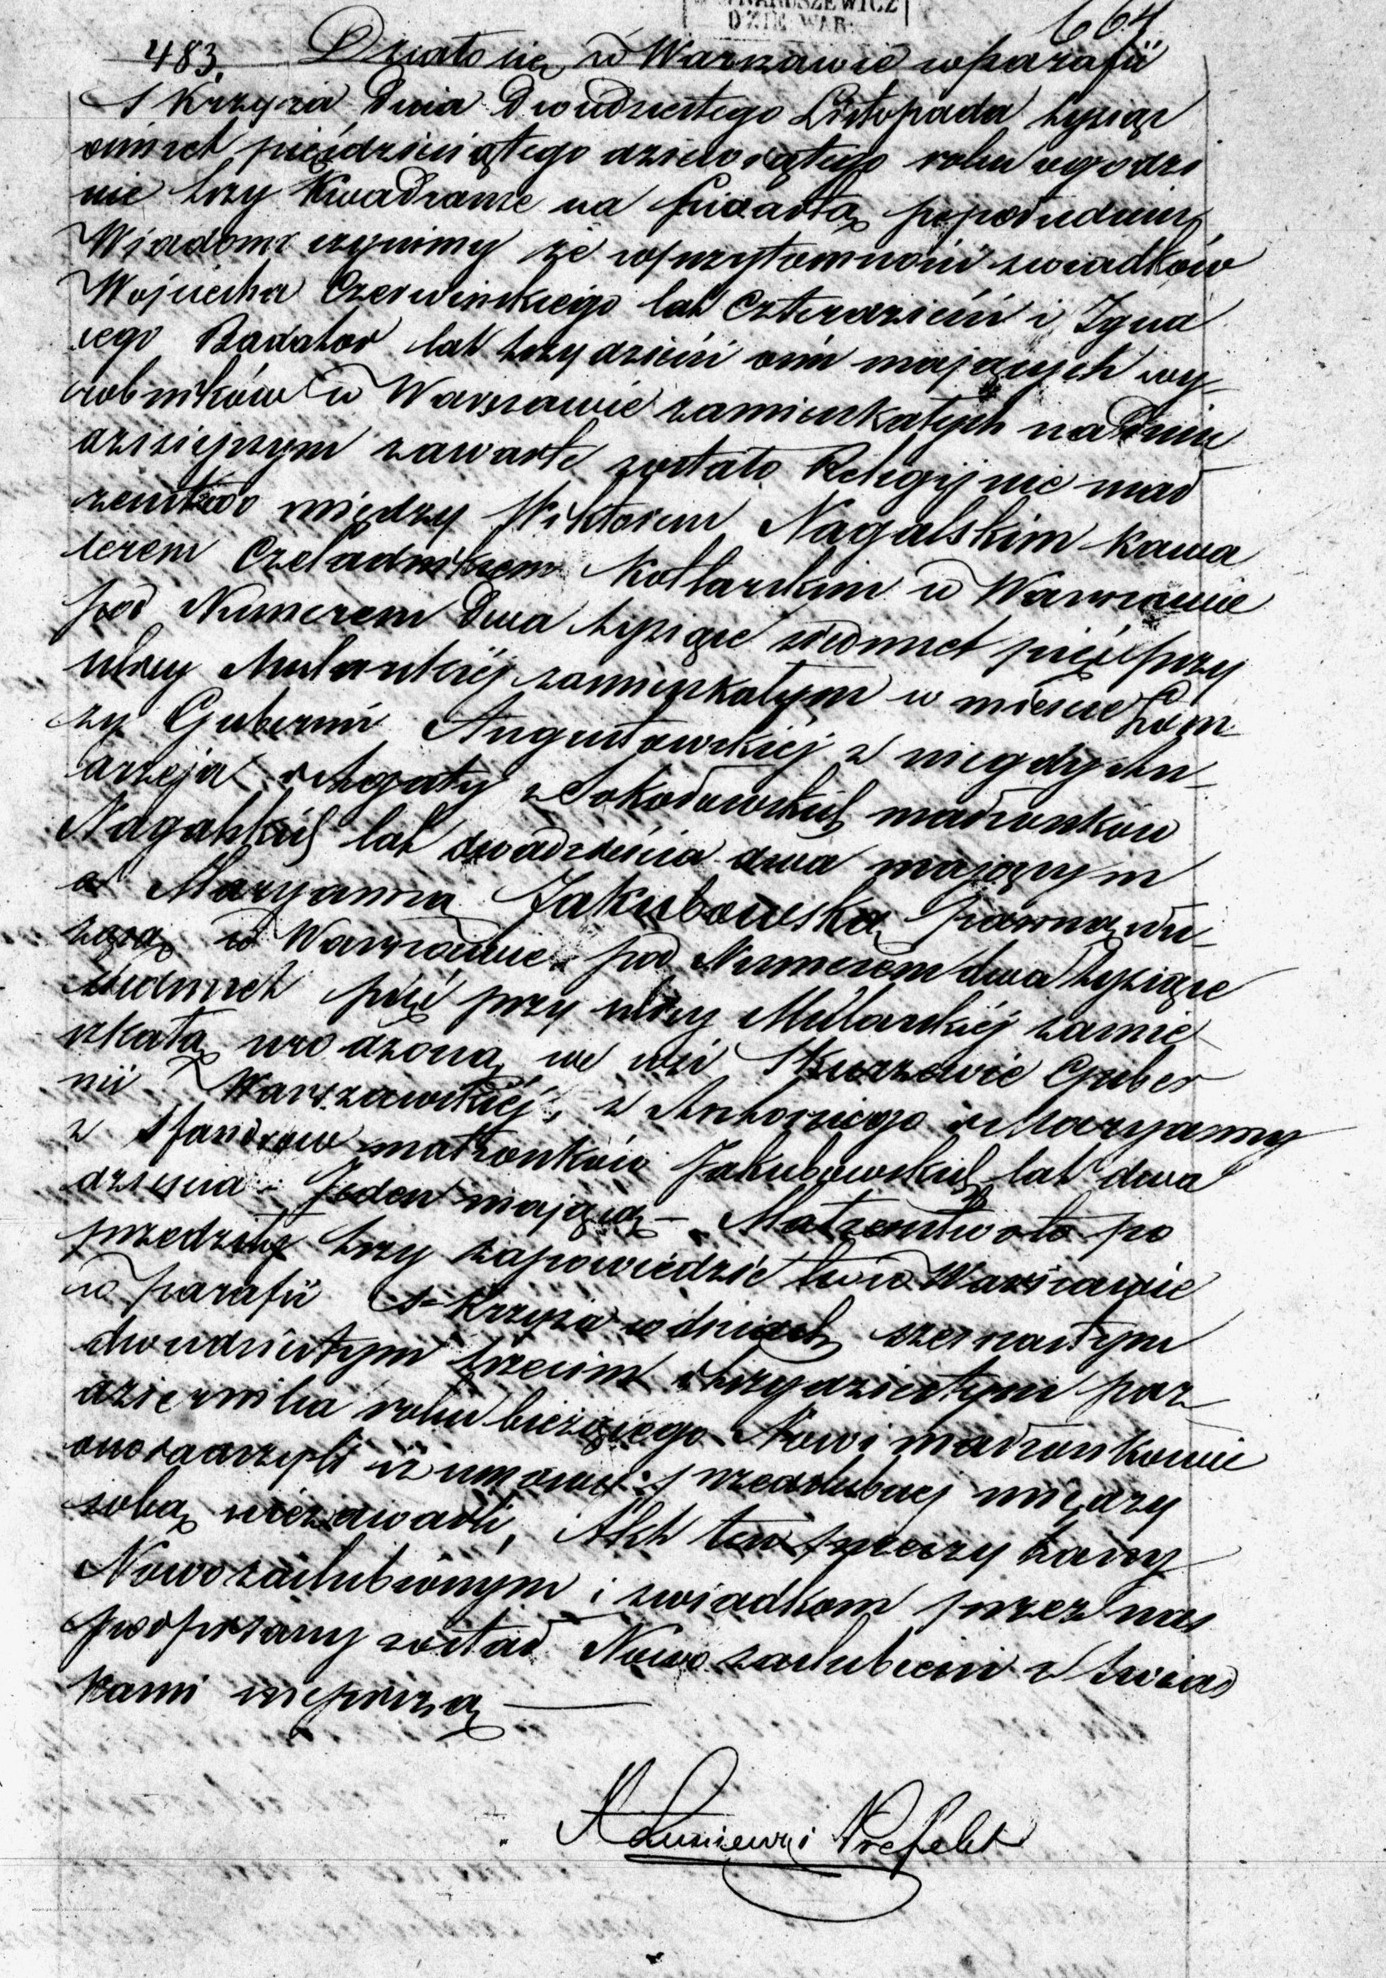 NARUSZEWICZ
DZIE. WAR.
664
483. Działo się w Warszawie w parafii
S Krzyża Dnia Dwudziestego Listopada tysiąc
ośmset pięćdziesiątego dziewiątego roku o godzi
nie trzy Kwadranse na piąatą popołudniu
Wiadomo czynimy że w przytomności świadków
Wojciecha Czerwińskiego lat Czterdzieści i Igna
cego Badator lat trzydzieści ośm mających wy
robników w Warszawie zamieszkałych na Dniu
dzisiejszym zawarte zostało Religijnie mał
żeństwo między Wiktorem Nagalskim Kawa
lerem Czeladnikiem Kotlarskim w Warszawie
pod Numerem Dwa tysiące siedmset pięć przy
ulicy Mularskiéj zamieszkałym w mieście Łom
ży Gubernii Augustowskiéj z niegdy An
drzeja i Agaty z Sokołowskich małżonków
Nagalskich lat dwadzieścia dwa mającym
a Maryanną Jakubowską panną słu
żącą w Warszawie pod Numerem dwa tysiące
siedmset pięć przy ulicy Mularskiéj zamie
szkałą urodzoną we wsi Skurzewie Guber
nii Warszawskiéj, z Antoniego i Maryanny
z małżonków Jakubowskich lat dwa
dzieścia Jeden mającą – Małżeństwo to po
przedziły trzy zapowiedzie tu w Warszawie
w parafii S– Krzyża w dniach szesnastym
dwudziestym trzecim i trzydziestym paź
dziernika roku bieżącego Nowi małżonkowie
oświadczyli iż umowy przedślubnej między
sobą niezawarli, Akt ten przeczytany
Nowozaślubionym i świadkom przez nas
podpisany został Nowo zaślubieni z świad
kami niepiszą —
Prefekt